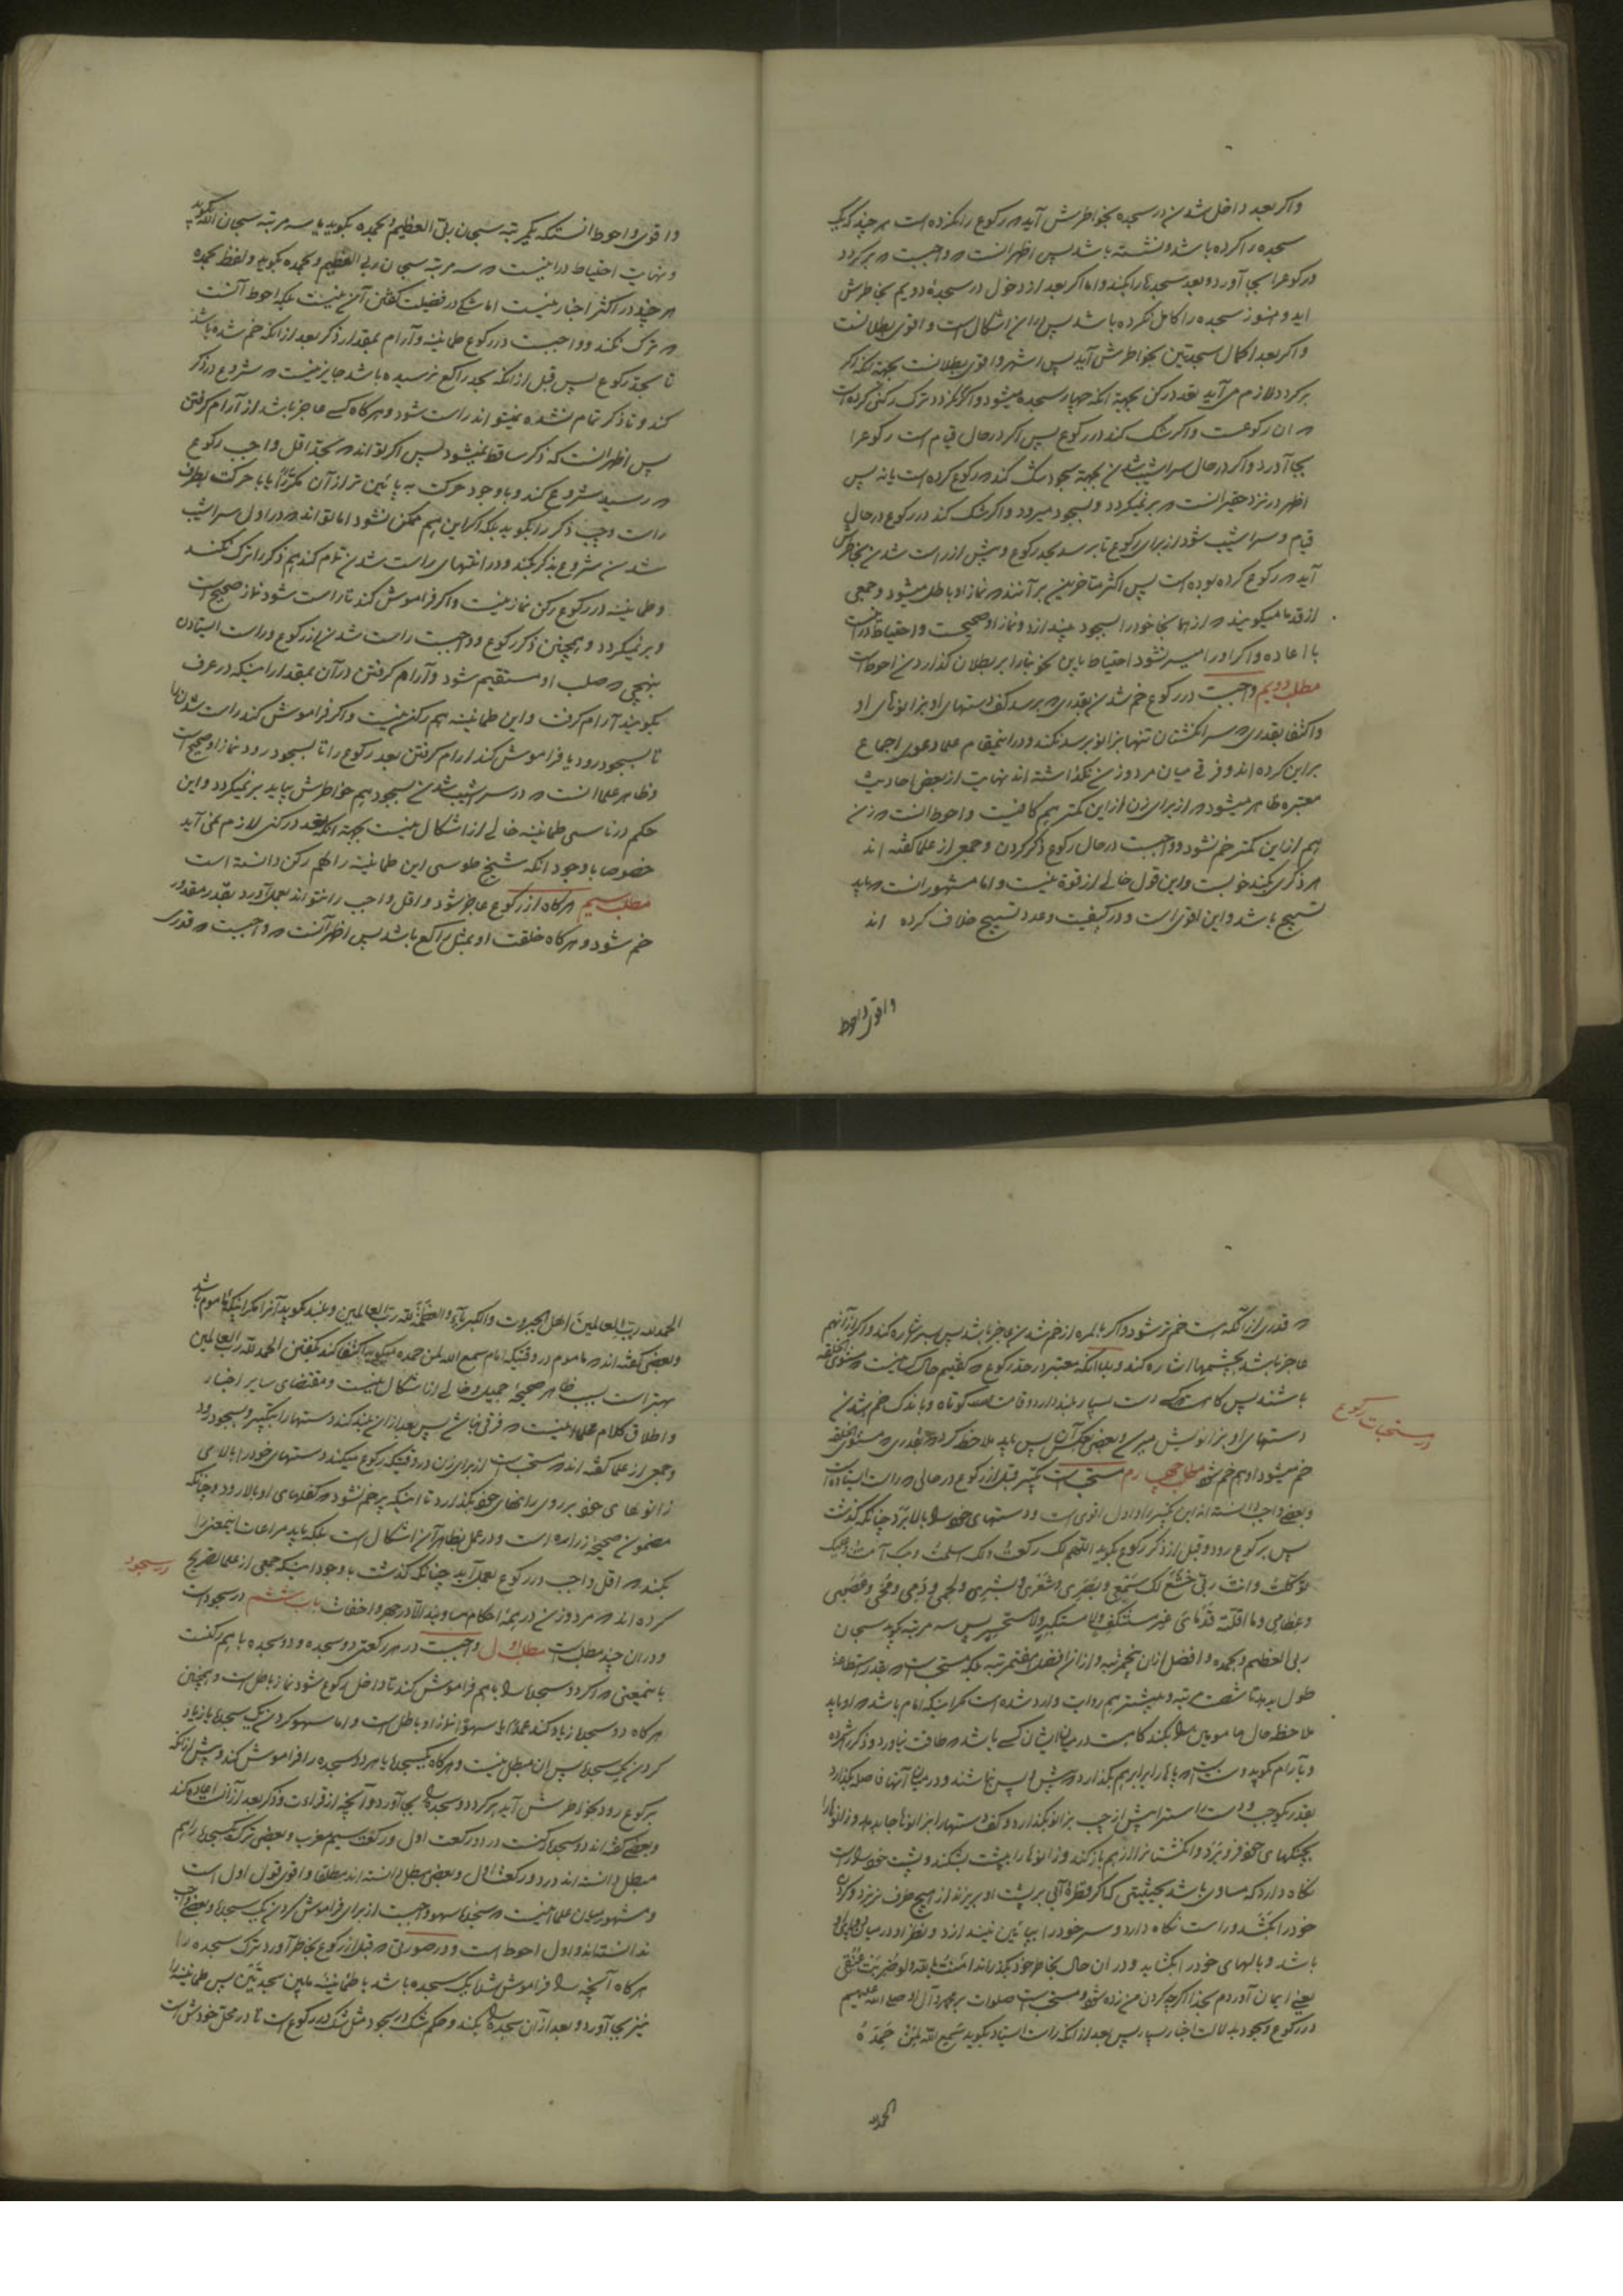 واکر بعد داخل شدن در سجده بخواطرش آید که رکوع را نکرده است هر چند که یک
سجده را کرده باشد و نشسته باشد پس اظهر انست که واجبست که بر کردد
و رکوع را بجا آورد و بعد سجدها را بکند و اما اکر بعد از دخول در سجدهٔ دویم بخاطرش
اید و هنوز سجده را کامل نکرده باشد پس در ان اشکال است و اقوی بطلانست
واکر بعد اکمال سجدتین بخواطرش آید پس اشهر و اقوی بطلانست بجهة آنکه اکر
بر کردد لازم می آید تعدد رکن بجهة آنکه چهار سجده میشود و اکر نکردد ترک رکنی کرده است
که ان رکوعست واکر شک کند در رکوع پس اکر در حال قیام است رکوع را
بجا آورد و اکر در حال سراشیب شدن بجهة سجود شک کند که رکوع کرده است یا نه پس
اظهر در نزد حقیر انست که بر نمیکردد و بسجود میرود و اکر شک کند در رکوع در حال
قیام و سراشیب شود از برای رکوع تا برسد بحد رکوع و پیش از راست شدن بخاطرش
آید که رکوع کرده بوده است پس اکثر متاخرین بر آنند که نماز او باطل میشود و جمعی
از قدما میکویند که از همانجا خود را بسجود بیندازد و نماز او صحیحست و احتیاط در انست
با اعاده و اکر او را میسر نشود احتیاط باین نحو بنا را بر بطلان کذاردن احوط است
مطلب دویم واجبست در رکوع خم شدن بقدری که برسد کف دستهای او بزانوهای او
و اکتفا بقدری که سر انکشتان تنها بزانو برسد نکند و در اینمقام علما دعوی اجماع
بر این کرده اند و فرقی میان مرد و زن نکذاشته اند نهایت از بعض احادیث
معتبره ظاهر میشود که از برای زن از این کمتر هم کافیست و احوط انست که زن
هم از این کمتر خم نشود و واجبست در حال رکوع ذکر کردن و جمعی از علما کفته اند
هر ذکری بکند خوبست و این قول خالی از قوة نیست و اما مشهور انست که باید
تسبیح باشد و این اقوی است و در کیفیت و عدد تسبیح خلاف کرده اند
واقوی واحوط
واقوی واحوط انستکه یکمرتبه سبحان ربی العظیم و بحمده بکوید یا سه مرتبه سبحان الله بکوید
و نهایت احتیاط در اینست که سه مرتبه سبحان ربی العظیم و بحمده بکوید و لفظ بحمده
هر چند در اکثر اخبار نیست اما شکی در فضیلت کفتن آن نیست بلکه احوط آنست
که ترک نکند و واجبست در رکوع طمانینه و آرام بمقدار ذکر بعد از آنکه خم شده باشد
تا بحد رکوع پس قبل از آنکه بحد راکع نرسیده باشد جایز نیست که شروع در ذکر
کند و تا ذکر تمام نشده نمیتواند راست شود و هر کاه کسی عاجز باشد از آرام کرفتن
پس اظهر انست که ذکر ساقط نمیشود پس اکر تواند که بحد اقل واجب رکوع
که رسید شروع کند و با وجود حرکت به پائین تر از آن یا با حرکت بطرف
راست واجب ذکر را بکوید بلکه اکر این هم ممکن نشود اما تواند که در اول سراشیب
شدن شروع بذکر بکند و در انتهای راست شدن تمام کند هم ذکر را ترک نکند
و طمانینه در رکوع رکن نماز نیست واکر فراموش کند تا راست شود نماز صحیح است
و بر نمیکردد و همچنین ذکر رکوع و واجبست راست شدن از رکوع و راست ایستادن
بنهجی که صلب او مستقیم شود و آرام کرفتن در آن بمقدار اینکه در عرف
بکویند آرام کرفت و این طمانینه هم رکن نیست واکر فراموش کند راست شدن را
تا بسجود رود یا فراموش کند ارام کرفتن بعد رکوع را تا بسجود رود نماز او صحیح است
و ظاهر علما انست که در سراشیب شدن بسجود هم خواطرش بیاید بر نمیکردد و این
حکم در ناسی طمانینه خالی از اشکال نیست بجهة آنکه تعدد رکنی لازم نمی آید
خصوصا با وجود انکه شیخ طوسی این طمانینه را هم رکن دانسته است
مطلب سیم هر کاه از رکوع عاجز شود و اقل واجب را نتواند بعمل آورد بقدر مقدور
خم شود و هر کاه خلقت او بمثل راکع باشد پس اظهر آنست که واجبست که قدری
که قدری از آنکه هست خم تر شود و اکر بالمره از خم شدن عاجز باشد پس بسر اشاره کند و اکر از آنهم
عاجز باشد بچشمها اشاره کند و بدانکه معتبر در حد رکوع که کفتیم حال کسانیست که مستوی الخلقه
باشند پس کاه هست که کسی دست بسیار بلند دارد و قامت کوتاه و باندک خم شدن
دستهای او بزانویش میرسد و بعضی بعکس آن پس باید ملاحظه کرد که بقدری که مستوی الخلقه
خم میشود او هم خم شود مطلب چهارم مستحب است تکبیر قبل از رکوع در حالی که راست ایستاده است
در مستحبات رکوع
و بعضی واجب دانسته اند این تکبیر را و اول اقوی است و دستهای خود را بالا برد چنانکه کذشت
پس برکوع رود و قبل از ذکر رکوع بکوید اللهم لک رکعت و لک اسلمت و بک آمنت و علیک
توکلت و انت ربی خشع لک سمعی و بصری و شعری و بشری و لحمی و دمی و مخی و عصبی
و عظامی و ما اقلته قدمای غیر مستنکف و لا مستکبر و لا مستحسر پس سه مرتبه بکوید سبحان
ربی العظیم و بحمده و افضل از آن پنجمرتبه و از آن افضل هفتمرتبه بلکه مستحب است که بقدر استطاعة
طول بدهد تا شصت مرتبه و بیشتر هم روایت وارد شده است مکر اینکه امام باشد که او باید
ملاحظه حال مامومین را بکند کاه هست در میان ایشان کسی باشد که طاقت نیاورد و ذکر را شمرده
و بآرام بکوید و سنت است که پاها را برابر هم بکذارد که پیش و پس نباشند و در میان آنها فاصله بکذارد
بقدر یکوجب و دست راست را پیش از چپ بزانو بکذارد و کف دستها را بزانوها جا بدهد و زانوها را
بچنکهای خود فرو برد و انکشتانرا از هم باز کند و زانوها را به پشت بشکند و پشت خود را راست
نکاه دارد که مساوی باشد بحیثیتی که اکر قطرهٔ آبی بر پشت او بریزند از هیچ طرف نریزد و کردن
خود را بکشد و راست نکاه دارد و سر خود را بپائین نیندازد و نظر او در میان دو پای او
باشد و بالهای خود را بکشاید و در ان حال بخاطر خود بکذراند آمنت بالله و لو ضربت عنقی
یعنی ایمان آوردم بخدا اکرچه کردن من زده شود و مستحب است صلوات بر محمد و آل او صلی الله علیهم
در رکوع و سجود بدلالت اخبار بسیار پس بعد از آنکه راست ایستاد بکوید سمع الله لمن حمده
الحمدلله
الحمدلله رب العالمین اهل الجبروت و الکبریاء و العظمة لله رب العالمین و بلند بکوید آنرا مکر اینکه ماموم باشد
و بعضی کفته اند که ماموم در وقتیکه امام سمع الله لمن حمده میکوید اکتفا کند بکفتن الحمد لله رب العالمین
بهتر است بسبب ظاهر صحیحهٔ جمیل و خالی از اشکال نیست و مقتضای سایر اخبار
و اطلاق کلام علما اینست که فرقی نباشد پس بعد از ان بلند کند دستها را بتکبیر و بسجود رود
و جمعی از علما کفته اند که مستحب است از برای زن در وقتیکه رکوع میکند دستهای خود را بالای
زانوهای خود بر روی رانهای خود بکذارد تا اینکه پر خم نشود که کفلهای او بالا رود و چنانکه
مضمون صحیحهٔ زراره است و در عمل بظاهر آن اشکال است بلکه باید مراعات اینمعنی را
بکند که اقل واجب در رکوع بعمل آید چنانکه کذشت با وجود اینکه جمعی از علما تصریح
در سجود
کرده اند که مرد و زن در همهٔ احکام مساویند الا در جهر و اخفات باب ششم در سجود است
و در ان چند مطلب است مطلب اول واجبست در هر رکعتی دو سجده و دو سجده با هم رکنست
باینمعنی که اکر دو سجده را با هم فراموش کند تا داخل رکوع شود نماز باطل است و همچنین
هر کاه دو سجده زیاد کند عمدا یا سهوا نماز او باطل است و اما سهو کردن یک سجده یا زیاد
کردن یک سجده پس ان مبطل نیست و هر کاه یکسجده یا هر دو سجده را فراموش کند و پیش از آنکه
برکوع رود بخواطرش آید بر کردد و سجده را بجا آورد و آنچه از قراءت و ذکر بعد از آن است اعاده کند
و بعضی کفته اند دو سجده رکنست در دو رکعت اول و رکعت سیم مغرب و بعضی ترک یکسجده را هم
مبطل دانسته اند در دو رکعت اول و بعضی مبطل دانسته اند مطلقا و اقوی قول اول است
و مشهور میان علما اینست که سجدهٔ سهو واجبست از برای فراموش کردن یک سجده و بعضی واجب
ندانسته اند و اول احوط است و در صورتی که قبل از رکوع بخاطر آورد ترک سجده را
هر کاه آنچه را فراموش شده یک سجده باشد با طمانینه مابین سجدتین پس طمانینه را
نیز بجا آورد و بعد از آن سجده را بکند و حکم شک در سجود مثل شک در رکوع است تا در محل خودش است